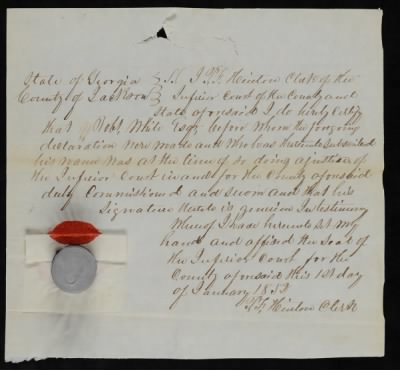 State of Georgia } I Hinton Clerk of the
County of Jackson } Inferior Court of the County and
State aforesaid I do hirby Certify
that Robt White Esqr before whom the foregoing
declaration were made and who has thereunto Subscribed
his name was at the time of so doing a justice of
the Inferior Court in and for the County aforesaid
duly Commissioned and sworn and that his
Signature thereto is genuine In testimony
Whereof I have hereunto Set my
hand and affixed the Seal of
the Inferior Court for the
County aforesaid this 1st day
of January 1853
Hinton Clerk